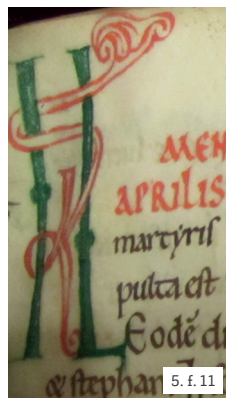 KL
MEN
APRILIS
martyris
pulta est
Eodē di
& stephan
5. f. 11